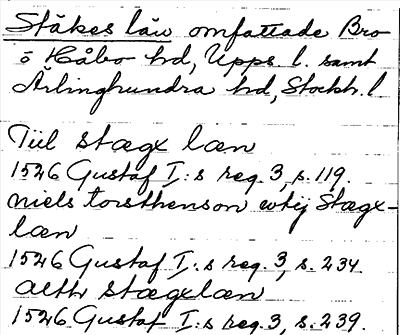 Stäkes län omfattade Bro
o Håbo hd, Upps l. samt
Ärlinghundra hd, Stockh. l
Tiil stægx læn
1526 Gustaf I:s reg. 3, s. 119.
niels torsthenson vtij Stægx-
læn
1526 Gustaf I:s reg. 3, s. 234.
aeth stægxlæn
1526 Gustaf I:s reg. 3, s. 239.